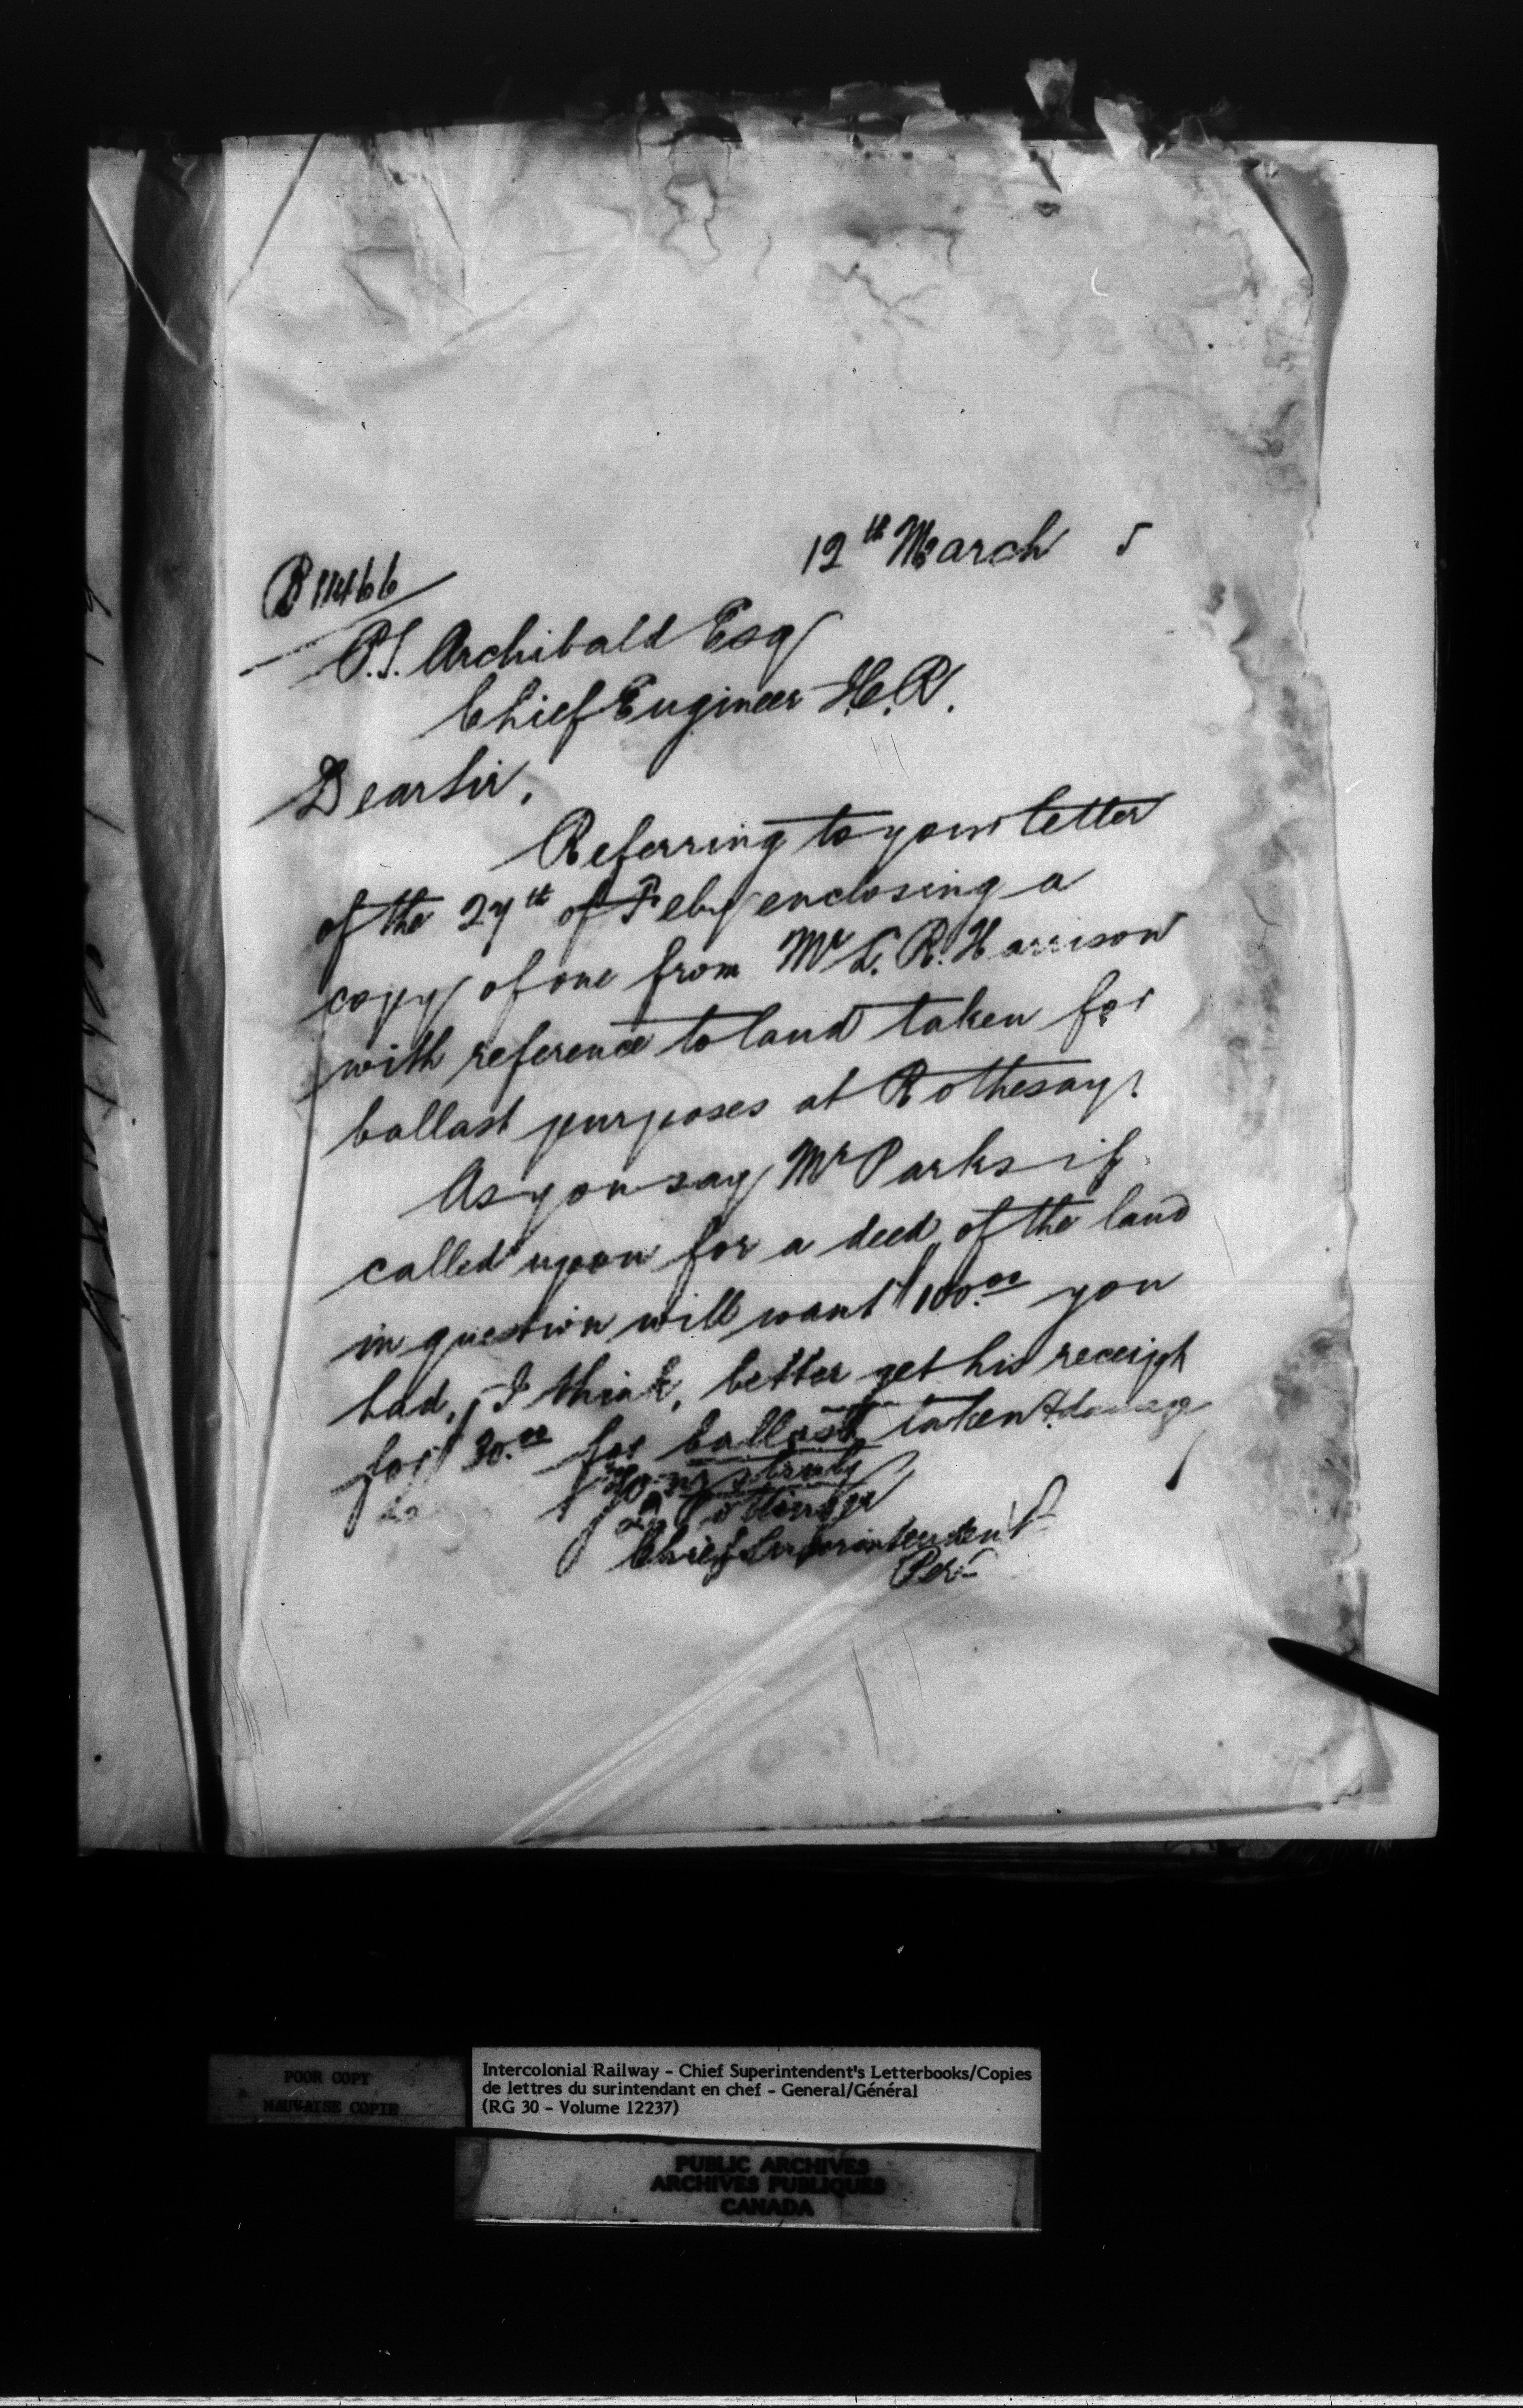 12th March 5
P.S. Archibald Esq
Chief Engineer I.C.R.
Dear Sir,
Referring to your letter
of the 27th of Feby enclosing a
copy of one from Mr L. R. Harrison
with reference to land taken for
ballast purposes at Rothesay.
As you say Mr Parks if
called upon for a deed of the land
in question will want $100.00 you
had, I think, better get his receipt
for $30.00 for ballast taken & damage
Yours truly
D Pottinger
Chief Superintendent
Per
POOR COPY
MAUVAISE COPIE
Intercolonial Railway - Chief Superintendent's Letterbooks/Copies
de lettres du surintendant en chef - General/Général
(RG 30 - Volume 12237)
PUBLIC ARCHIVES
ARCHIVES PUBLIQUES
CANADA